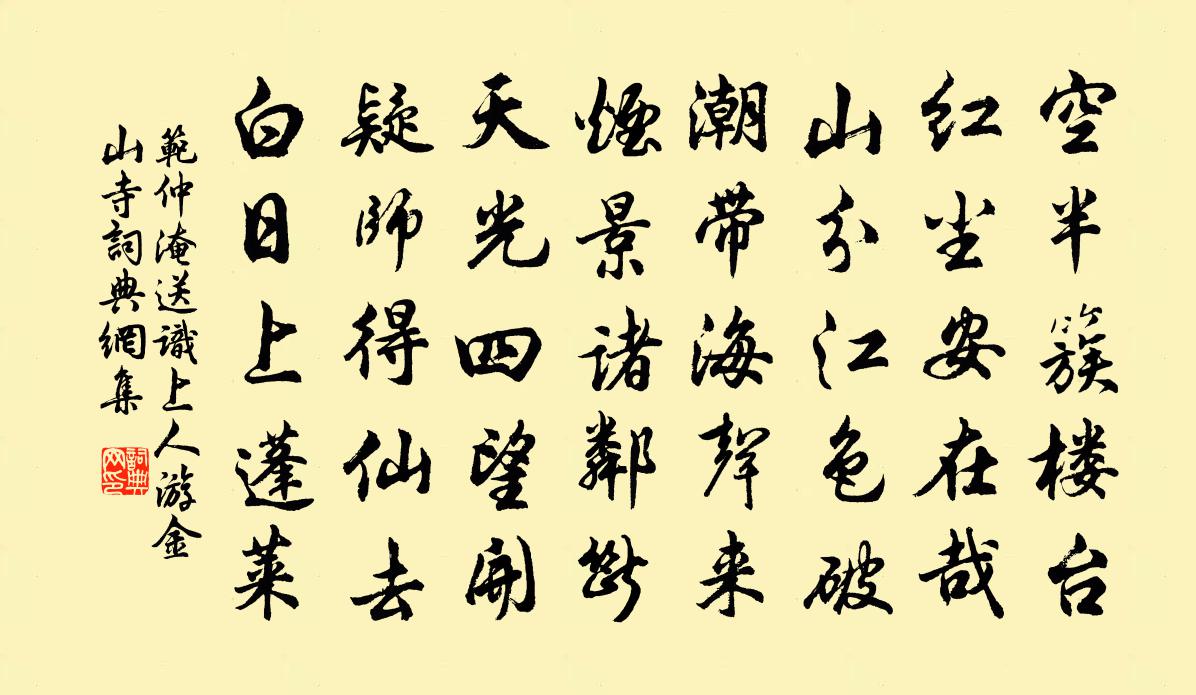 空半簇楼台
红尘安在哉
山分江色破
潮带海声来
煙景诸鄰断
天光四望開
疑師得仙去
白日上蓬莱
範仲淹送識上人游金
山寺詞典網集
詞典
网印